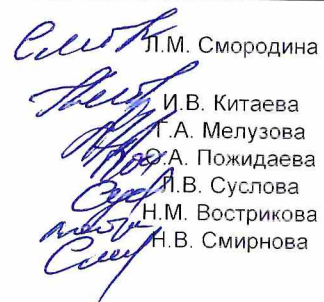 Л.М. Смородина
И.В. Китаева
Г.А. Мелузова
О.А. Пожидаева
Л.В. Суслова
Н.М. Вострикова
Н.В. Смирнова